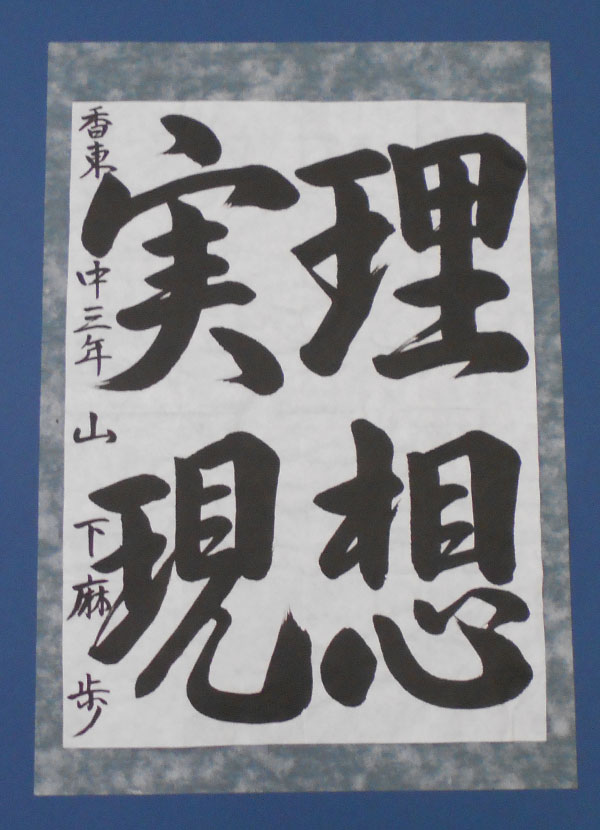 理想
実現
香東 中三年 山下麻歩